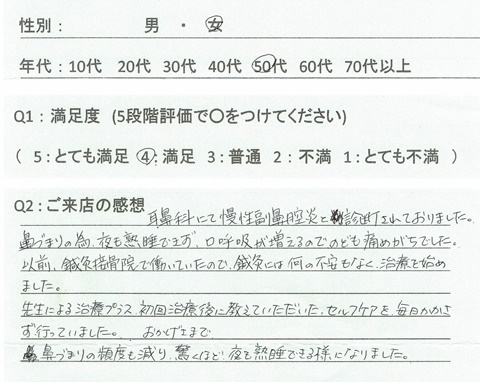 性別： 男 ・ 女
年代：10代 20代 30代 40代 50代 60代 70代以上
Q1：満足度 (5段階評価で〇をつけてください)
( 5：とても満足 4：満足 3：普通 2：不満 1：とても不満 )
Q2：ご来店の感想
耳鼻科にて慢性副鼻腔炎と診断されておりました。
鼻づまりの為、夜も熟睡できず、口呼吸が増えるのでのども痛めがちでした。
以前、鍼灸接骨院で働いていたので、鍼灸には何の不安もなく、治療を始め
ました。
先生による治療プラス、初回治療後に教えていただいた、セルフケアを、毎日かかさ
ず行っていました。 おかげさまで
鼻づまりの頻度も減り、驚くほど夜も熟睡できる様になりました。